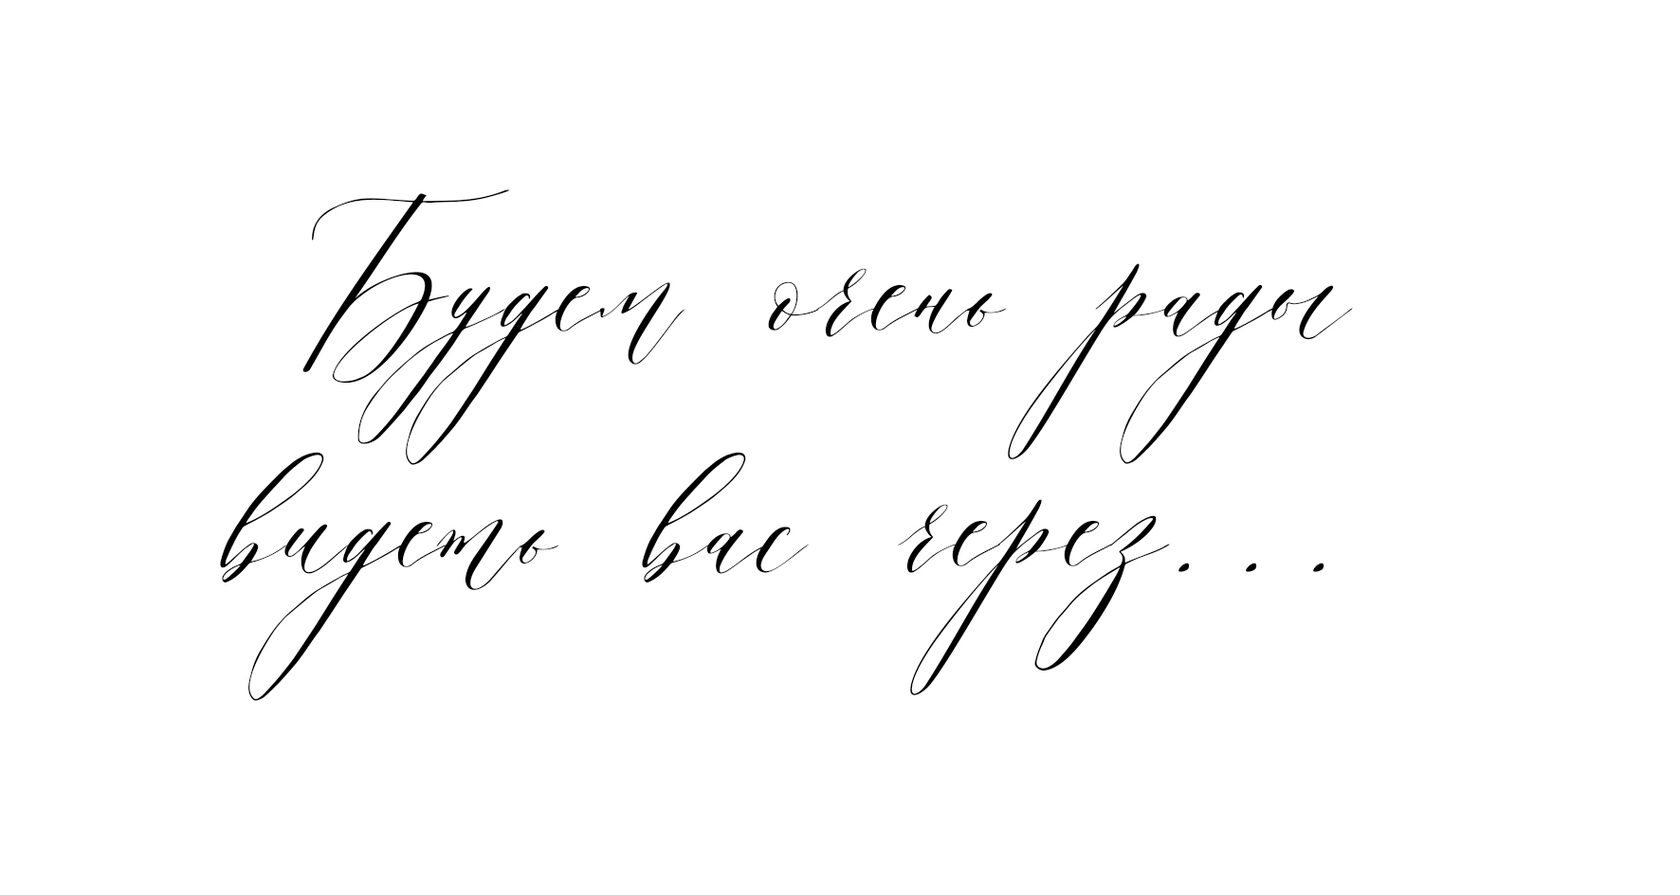 Будем очень рады
видеть вас через...